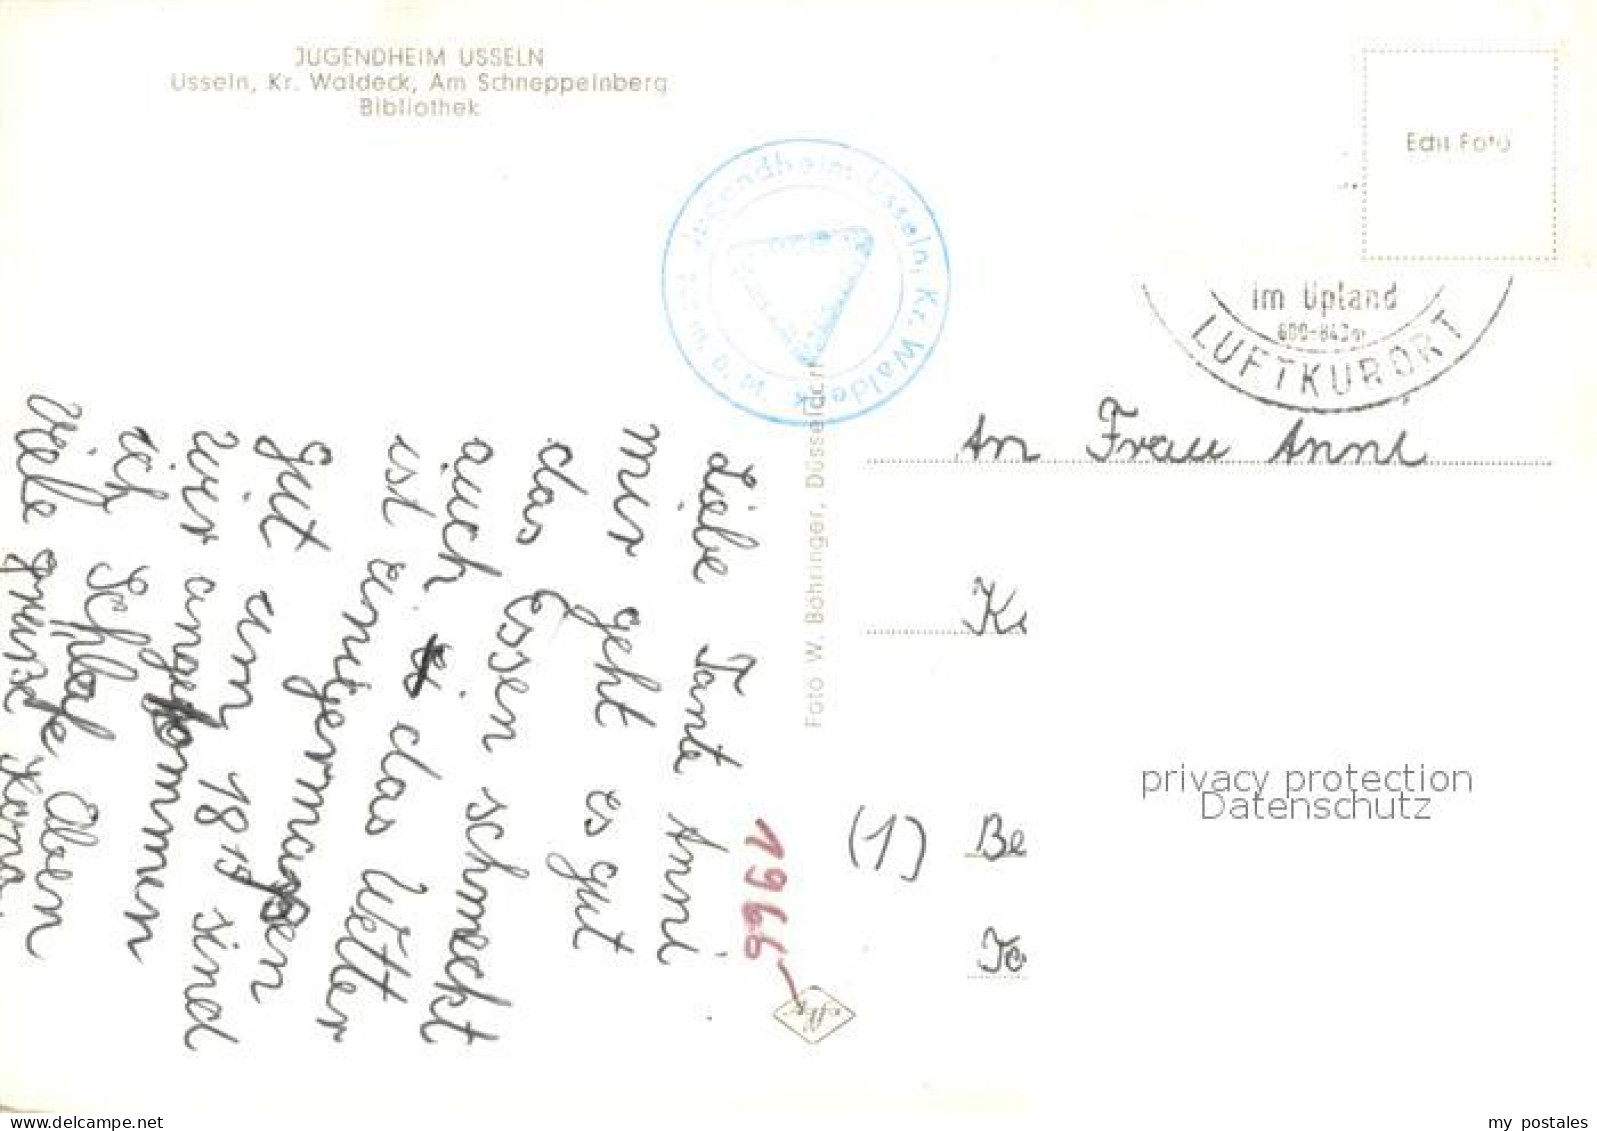 JUGENDHEIM USSELN
Usseln, Kr. Waldeck, Am Schneppelnberg
Bibliothek
Echt Foto
Jugendheim Usseln, Kr. Waldeck
im Upland
600-843m
LUFTKURORT
An Frau Anni
K
(1) Be
To
privacy protection
Datenschutz
Foto W. Böhringer, Düsseldorf
1966
Liebe Tante Anni
mir geht es gut
das Essen schmeckt
auch das Wetter
ist einigermaßen
Gut um 18 15 sind
wir angekommen
ich schlafe Oben
Viele grüße
delcampe.net
my_postales